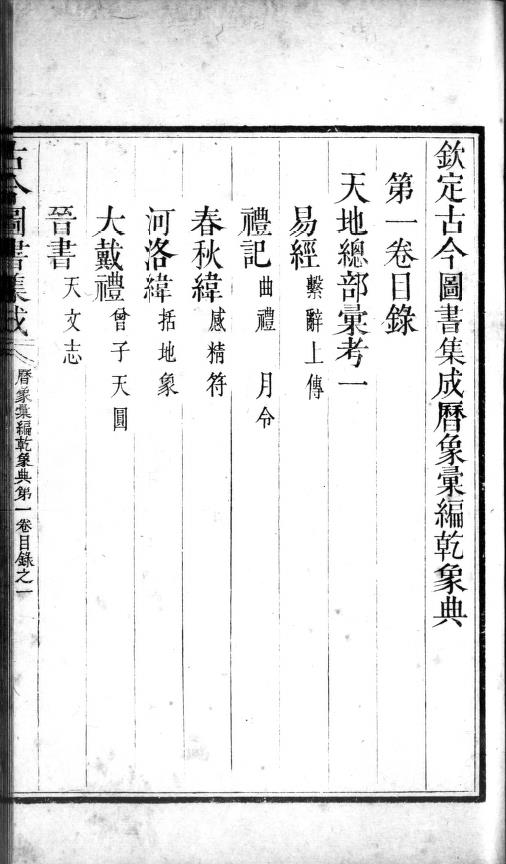 欽定古今圖書集成曆象彙編乾象典
第一卷目錄
天地總部彙考一
易經 繫辭上傳
禮記 曲禮 月令
春秋緯 感精符
河洛緯 括地象
大戴禮 曾子天圓
晉書 天文志
古今圖書集成 曆象彙編乾象典第一卷目錄之一